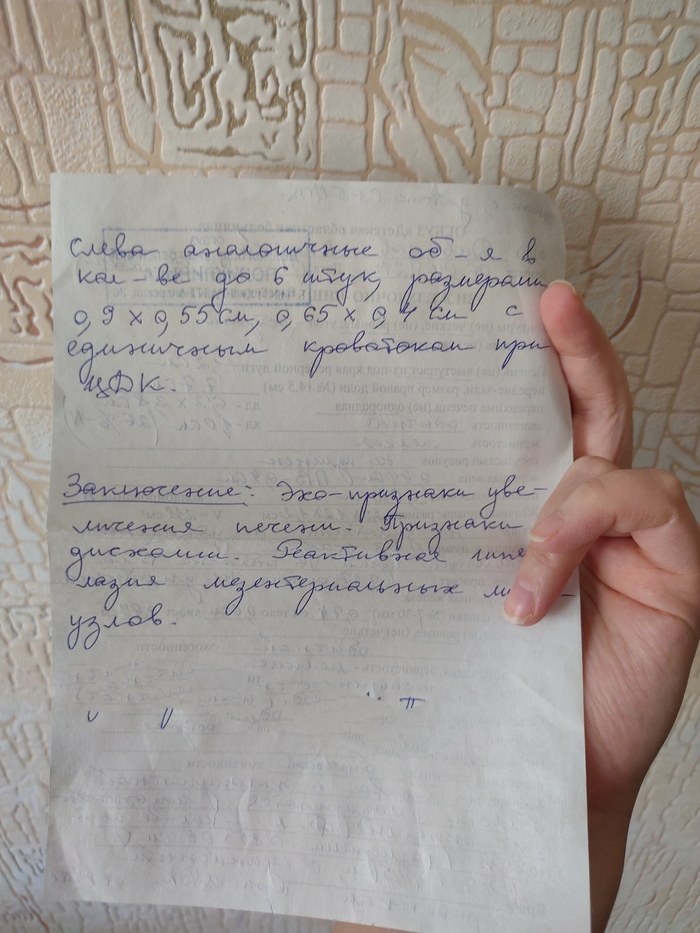 Слева аналогичные об-я в
кол-ве до 6 штук, размерами
0,9 х 0,55 см, 0,65 х 0,4 см с
единичным кровотоком при
ЦДК.
Заключение: Эхо-признаки уве-
личения печени. Признаки
дисхолии. Реактивная
лазия мезентериальных
узлов.